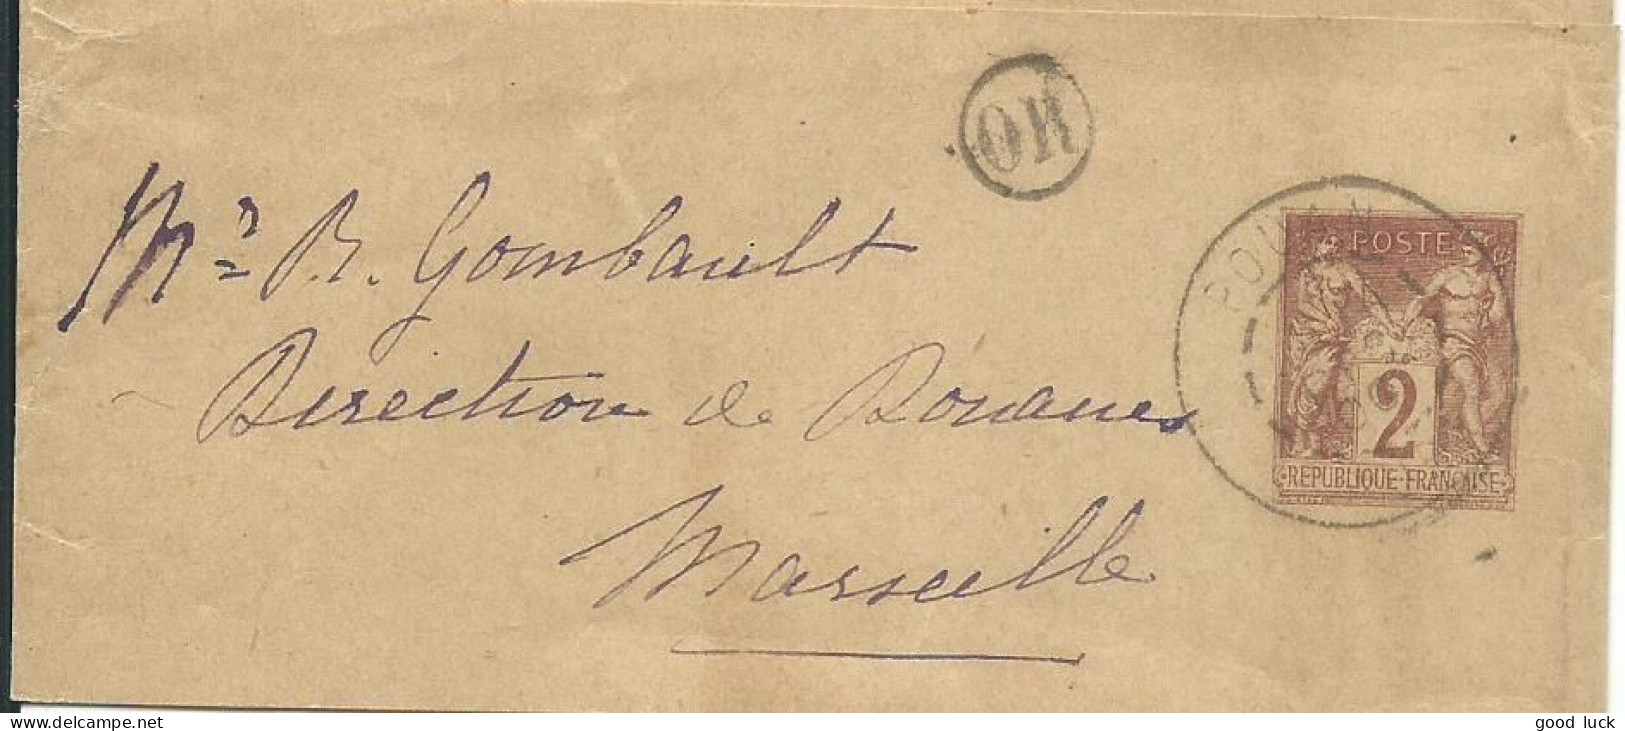 OR
Mr R. Gombault
Direction de Douanes
Marseille
POSTE
2
REPUBLIQUE·FRANÇAISE
good luck